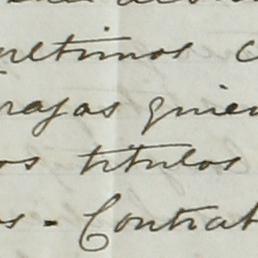 ultimos c
rajas quien
os titulos
s - Contrat